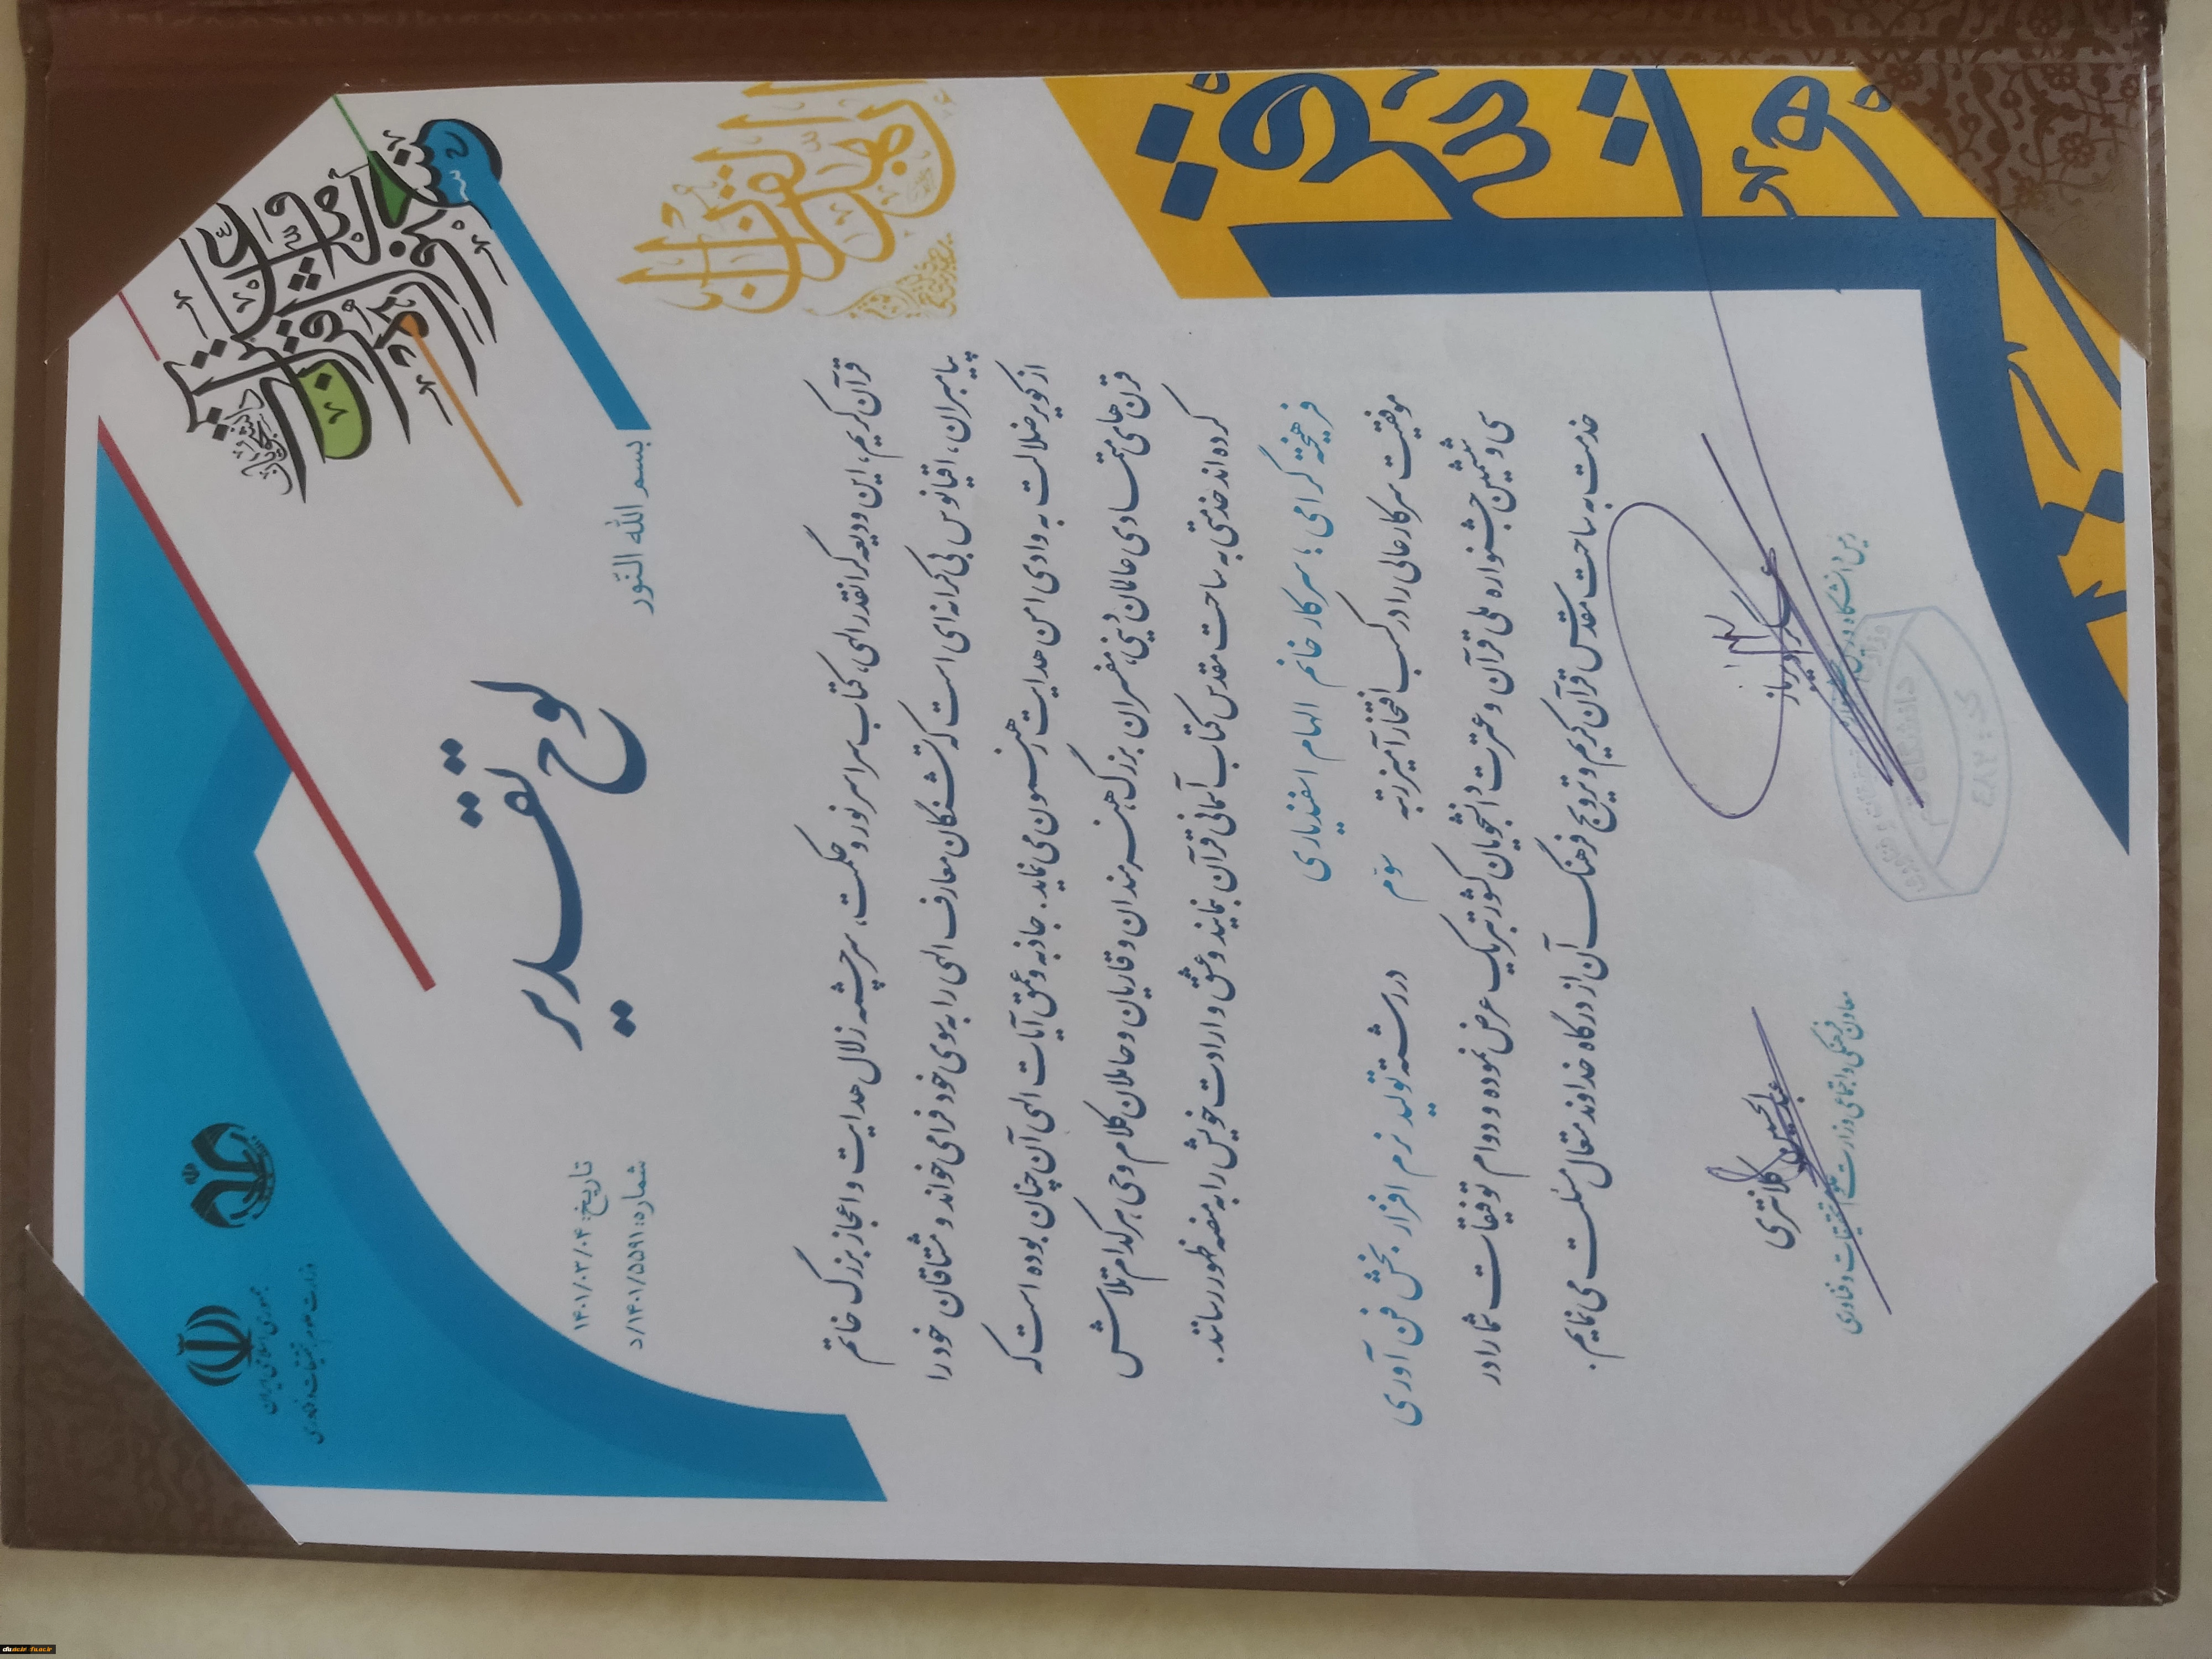 جمهوری اسلامی ایران
وزارت علوم، تحقیقات و فناوری
بسم الله النّور
لوح تقدیر
تاریخ: ۱۴۰۱/۰۳/۰۴
شماره: ۵۵۹۱/۱۴۰۱/د
قرآن کریم، این ودیعه گرانقدر الهی، کتاب سراسر نور و حکمت، سرچشمه زلال هدایت و اعجاز بزرگ خاتم
پیامبران، اقیانوس بی کرانه ای است که تشنگان معارف الهی را به سوی خود فرا می خواند و مشتاقان خود را
از کویر ضلالت به وادی امن هدایت رهنمون می نماید. جاذبه و عمق آیات الهی آن چنان بوده است که
قرن های متمادی عالمان دینی، مفسران بزرگ، هنرمندان و قاریان و حاملان کلام وحی هر کدام تلاش
کرده اند خدمتی به ساحت مقدس کتاب آسمانی قرآن بنمایند و عشق و ارادت خویش را به منصه ظهور رسانند.
فرهیخته گرامی؛ سرکار خانم الهام اسفندیاری
موفقیت سرکار عالی را در کسب افتخار آمیز رتبه سوّم در رشته تولید نرم افزار بخش فن آوری
سی و ششمین جشنواره ملی قرآن و عترت دانشجویان کشور تبریک عرض نموده و دوام توفیقات شما را در
خدمت به ساحت مقدّس قرآن کریم و ترویج فرهنگ آن از درگاه خداوند متعال مسئلت می نمایم.
عبدالحسین کلانتری
معاون فرهنگی و اجتماعی وزارت علوم، تحقیقات و فناوری
دانشگاه قم
کد: ۴۸۲